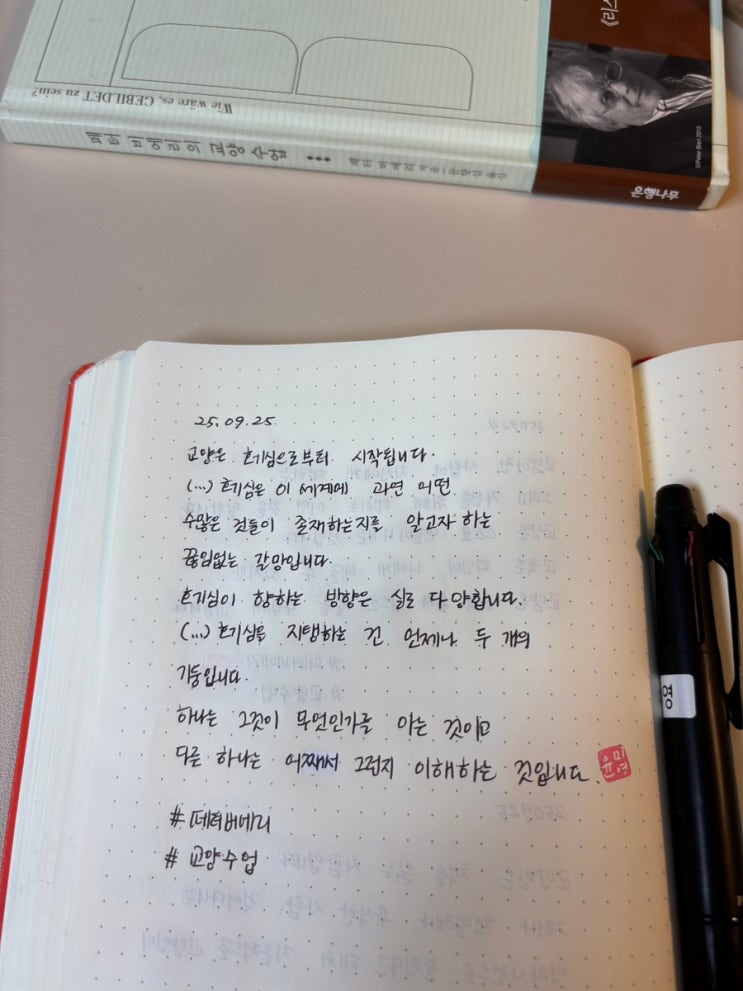 Wie wäre es, GEBILDET zu sein?
페터 비에리의 교양 수업
페터 비에리 지음
은행나무
25.09.25.
교양은 호기심으로부터 시작됩니다.
(...) 호기심은 이 세계에 과연 어떤
수많은 것들이 존재하는지를 알고자 하는
끊임없는 갈망입니다.
호기심이 향하는 방향은 실로 다양합니다.
(...) 호기심을 지탱하는 건 언제나 두 개의
기둥입니다.
하나는 그것이 무엇인가를 아는 것이고
다른 하나는 어째서 그런지 이해하는 것입니다.
# 페터비에리
# 교양수업
영